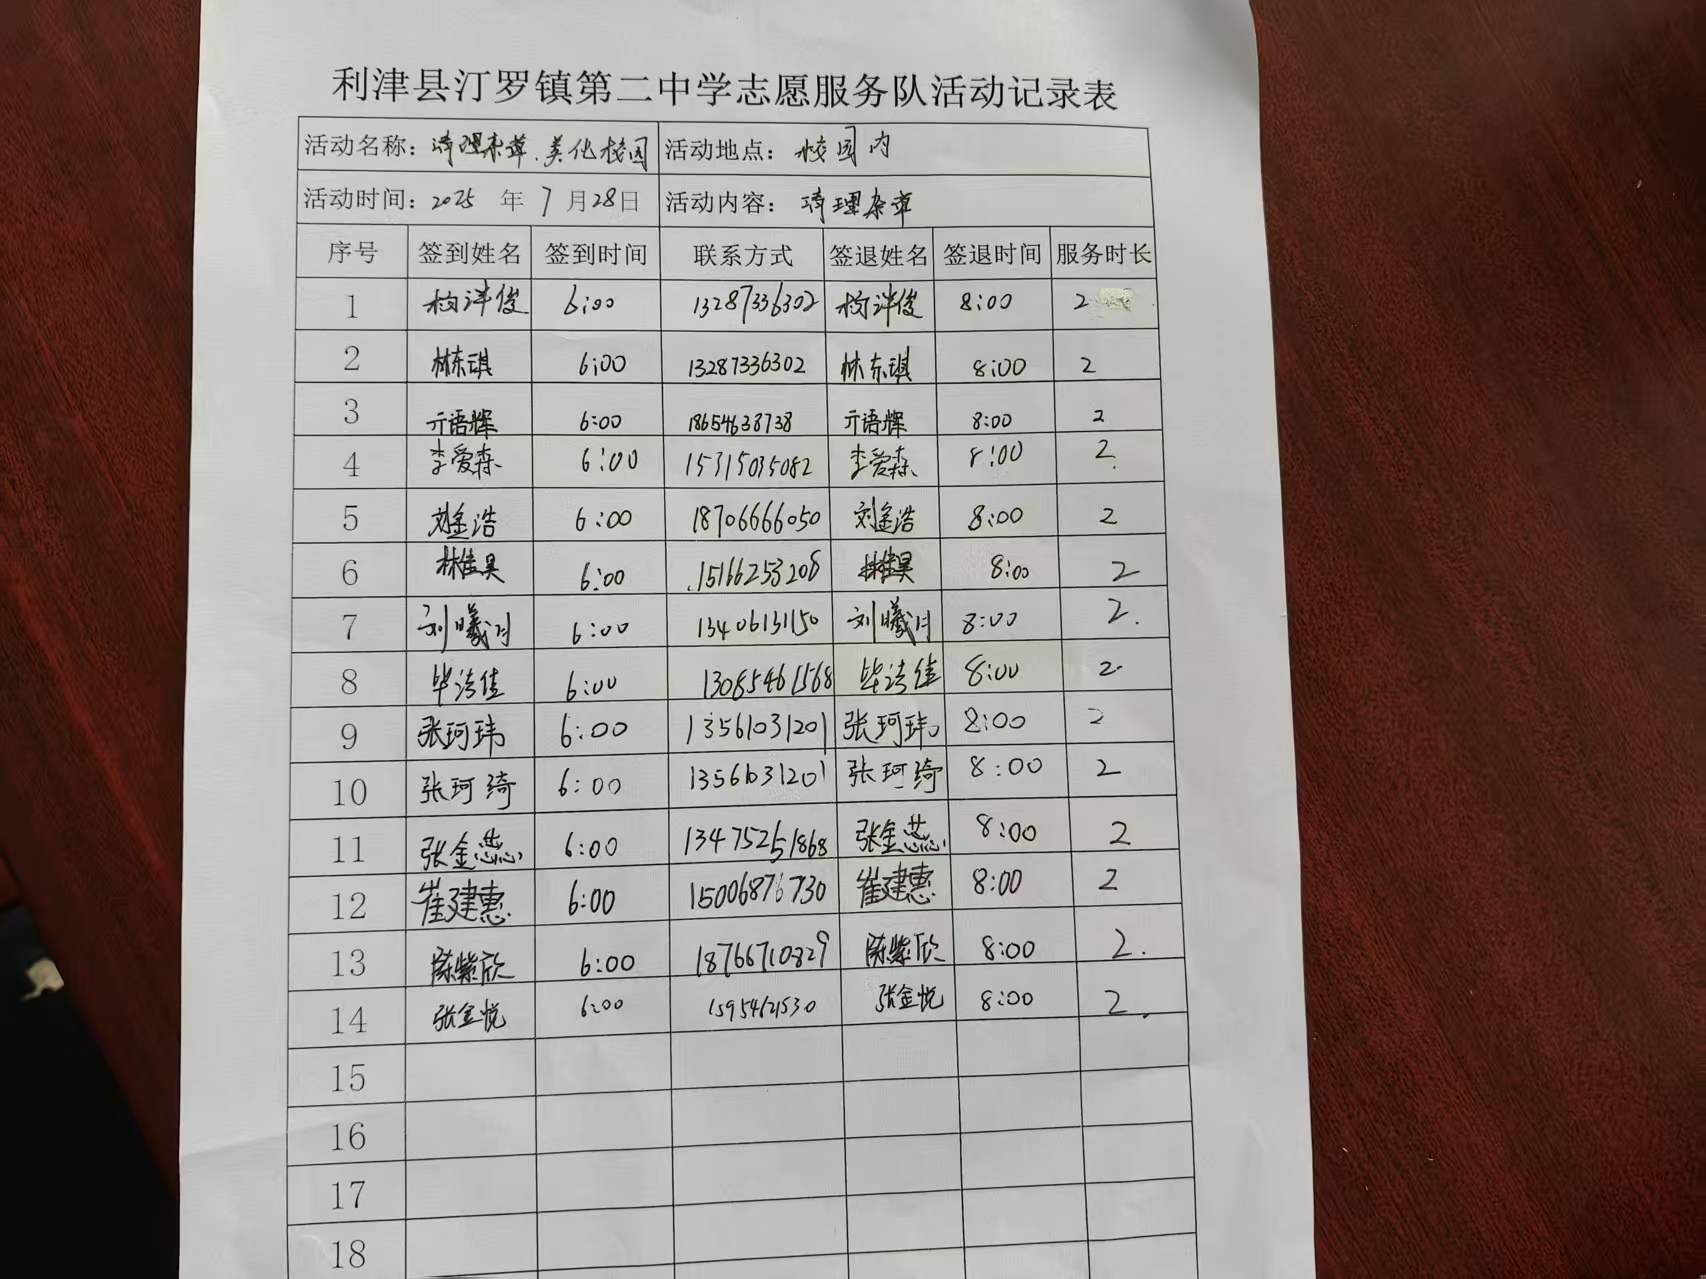 利津县汀罗镇第二中学志愿服务队活动记录表
活动名称：清理杂草、美化校园 活动地点：校园内
活动时间：2025 年 7 月 28 日 活动内容：清理杂草
序号 签到姓名 签到时间 联系方式 签退姓名 签退时间 服务时长
1 6:00 13287336302 8:00 2
2 林东琪 6:00 13287336302 林东琪 8:00 2
3 亓语辉 6:00 18654638738 亓语辉 8:00 2
4 李爱森 6:00 15315035082 李爱森 8:00 2
5 刘金浩 6:00 18706666050 刘金浩 8:00 2
6 林佳昊 6:00 15166253208 林佳昊 8:00 2
7 刘曦月 6:00 13406131150 刘曦月 8:00 2
8 毕洁佳 6:00 13085461568 毕洁佳 8:00 2
9 张珂玮 6:00 13561031201 张珂玮 8:00 2
10 张珂绮 6:00 13561031201 张珂绮 8:00 2
11 张金蕊 6:00 13475251868 张金蕊 8:00 2
12 崔建惠 6:00 15006876730 崔建惠 8:00 2
13 陈紫欣 6:00 18766710829 陈紫欣 8:00 2
14 张金悦 6:00 15954621530 张金悦 8:00 2
15
16
17
18